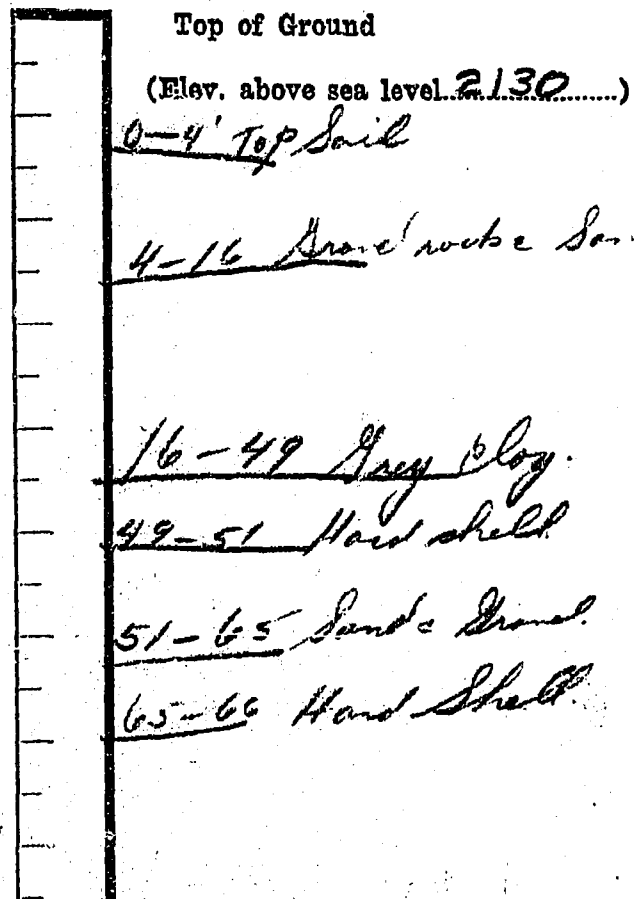 Top of Ground
(Elev. above sea level 2130)
0-4' Top Soil
4-16 Gravel rock & San
16-49 Grey Clay.
49-51 Hard shell
51-65 Sand & Gravel.
65-66 Hard Shell.